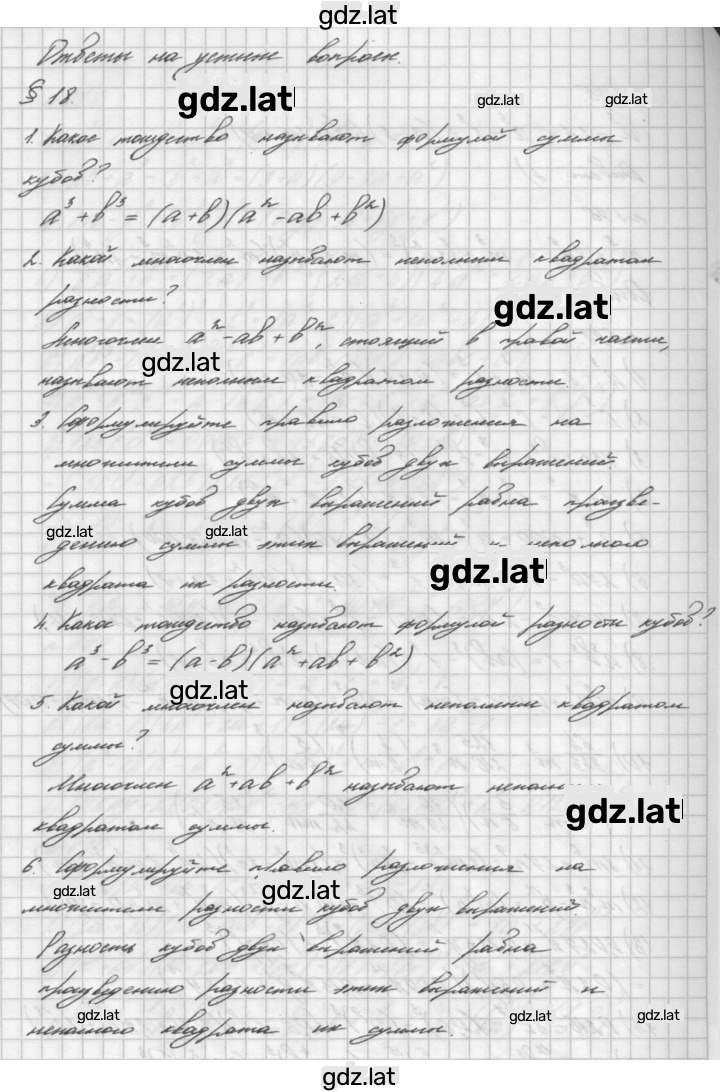 gdz.lat
Ответы на устные вопросы.
§ 18.
gdz.lat gdz.lat gdz.lat
1. Какое тождество называют формулой суммы
кубов?
a³ + b³ = (a + b)(a² - ab + b²)
2. Какой многочлен называют неполным квадратом
разности?
gdz.lat
Многочлен a² - ab + b², стоящий в правой части,
gdz.lat
называют неполным квадратом разности.
3. Сформулируйте правило разложения на
множители суммы кубов двух выражений.
Сумма кубов двух выражений равна произве-
gdz.lat gdz.lat
дению суммы этих выражений и неполного
gdz.lat
квадрата их разности.
4. Какое тождество называют формулой разности кубов?
a³ - b³ = (a - b)(a² + ab + b²)
gdz.lat
5. Какой многочлен называют неполным квадратом
суммы?
Многочлен a² + ab + b² называют
gdz.lat
квадратом суммы.
6. Сформулируйте правило разложения на
gdz.lat gdz.lat
множители разности кубов двух выражений.
Разность кубов двух выражений равна
произведению разности этих выражений и
gdz.lat gdz.lat gdz.lat
неполного квадрата их суммы.
gdz.lat